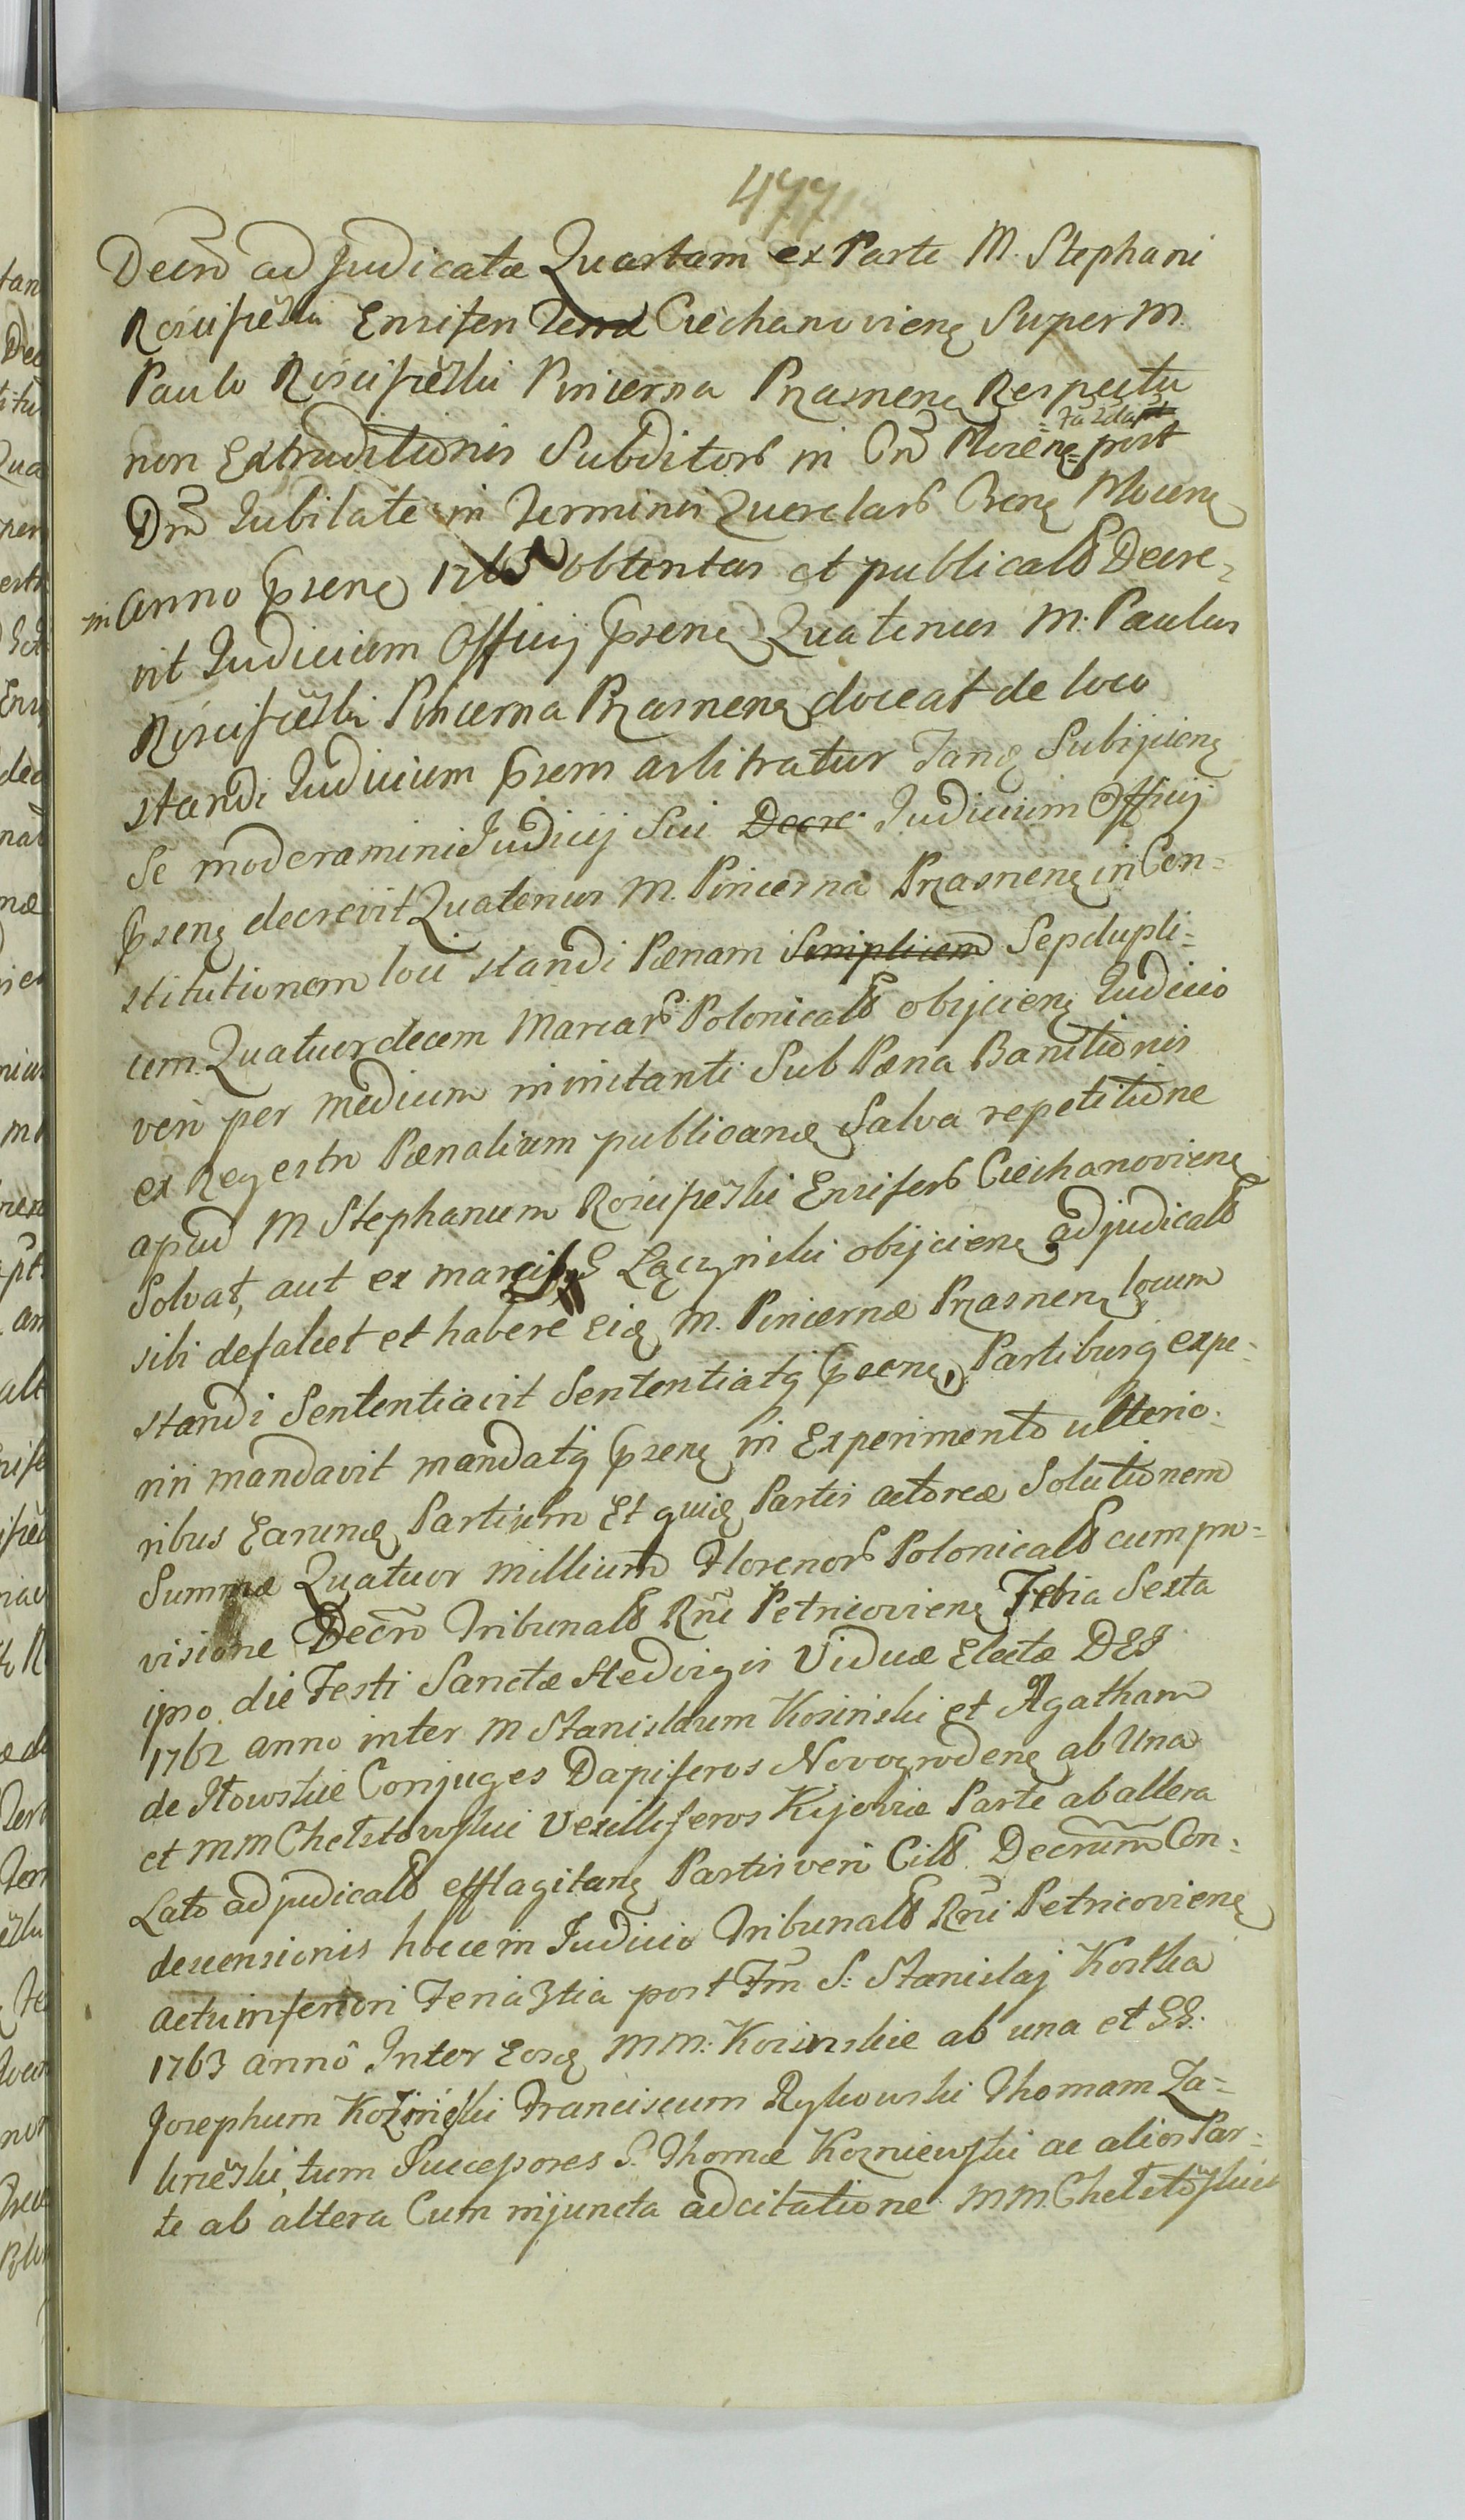 477
Decro adjudicatæ Quartam ex Parte M. Stephani
Rościszewski Ensiferi Terræ Ciechanoviens Super M.
Paulo Rościszewski Pincerna Prasnens Respectu
non Extraditionis Subditorb in Cro Mocens = fa 2da pt = post
Dm Jubilate in Terminis Querelarb Crens Mlocens
in Anno prsens 1765 obtentas et publicatb Decre-
vit Judicium Officij prsens Quatenus M. Paulus
Rościszewski Pincerna Prasnens doceat de loco
standi Judicium prsens arbitratur Tanq Subijciens
Se moderamini Judicij Sui Decre Judicium Officij
prsens decrevit Quatenus M. Pincerna Prasnens in Con-
stitutionem loci standi Pœnam Simplicem Septupli-
cem Quatuordecem Marcarb Polonicalb obijciens Judicio
vero per medium ininstanti Sub Pœna Banitionis
ex Regestro Pœnalium publicanæ Salva repetitione
apud M Stephanum Rościszewski Ensiferb Ciechanoviens
Solvat, aut ex marcis G Łączynski obijciens adjudicatb
sibi defalcet et habere Eid M. Pincernæ Prasnens locum
standi Sententiavit Sententiatq prsens, Partibusq expe-
riri mandavit mandatq prsens in Experimento ulterio-
ribus Earund Partium Et quid Partis actoreæ Solutionem
Summæ Quatuor millium Florenorb Polonicalb cum pro-
visione Decro Tribunalb Rni Petricoviens Feria Sexta
ipso die Festi Sanctæ Hedvigis Viduæ Electæ DEI
1762 anno inter M Stanislaum Kosinski et Agatham
de Iłowskie Conjuges Dapiferos Novogrodens ab Una
et MM Chełstowskie Vexilliferos Kijoviæ Parte ab altera
Lato adjudicatb efflagitans Partis vero Citb Decrum Con-
descensionis hocce in Judicio Tribunalb Rni Petricoviens
actu inferiori Feria 3tia post Fm S. Stanislaj Kostka
1763 anno Inter Eosd MM. Kosinskie ab una et GG.
Josephum Koziński Franciscum Rykowski Thomam Za-
krzewski, tum Successores S. Thomæ Kozniewski ac alios Par-
te ab altera Cum injuncta adcitatione MM. Chełstowskich